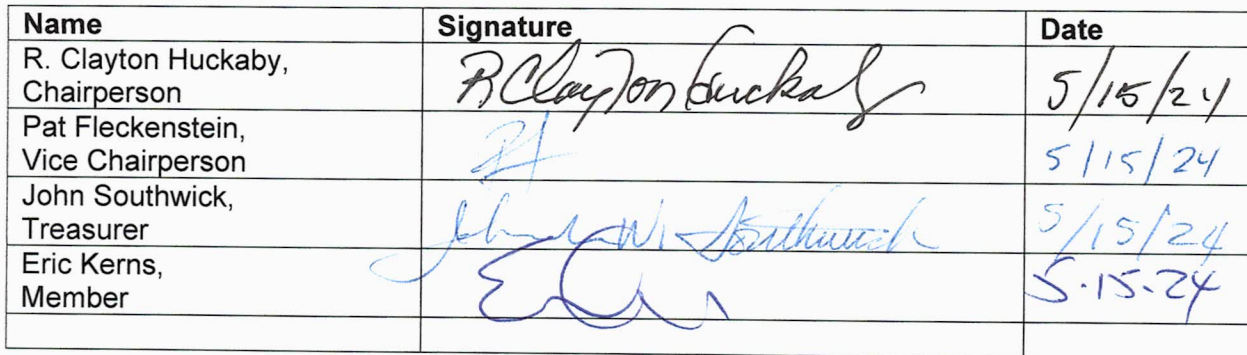 Name Signature Date
R. Clayton Huckaby,
Chairperson
R Clayton Huckaby 5/15/24
Pat Fleckenstein,
Vice Chairperson
5/15/24
John Southwick,
Treasurer
John W. Southwick 5/15/24
Eric Kerns,
Member
5-15-24